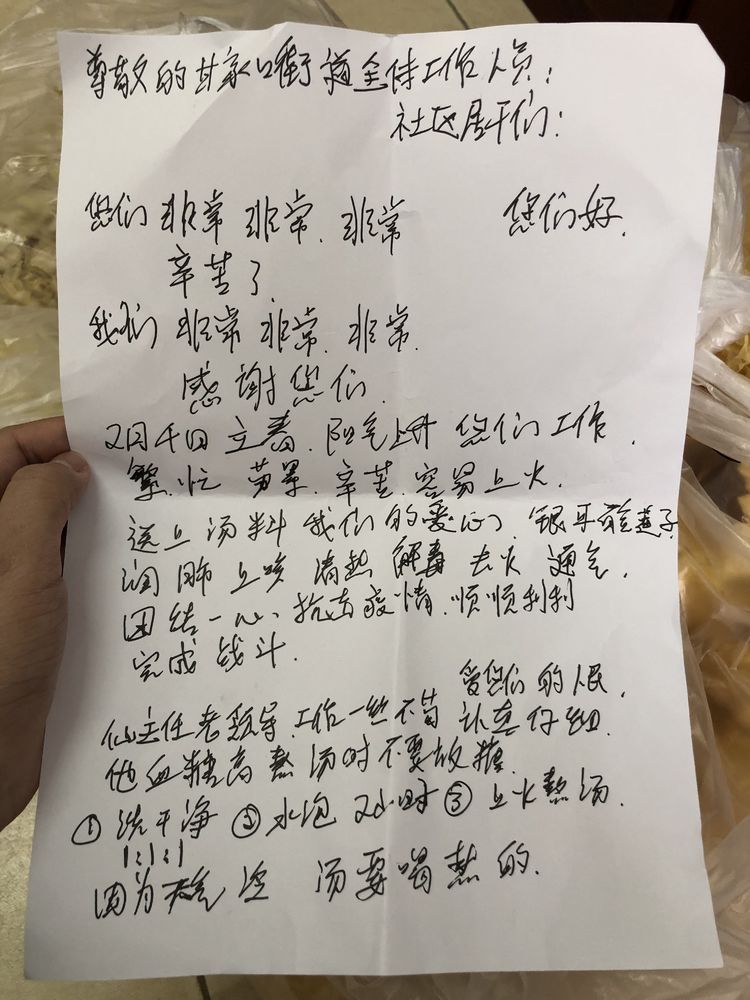 尊敬的甘家口街道全体工作人员：
社区居干们：
您们非常 非常、非常 您们好.
辛苦了
我们非常 非常、非常.
感谢您们.
2月4日立春、阳气上升 您们工作.
繁忙 劳累、辛苦、容易上火.
送上汤料 我们的爱心、银耳 燕子
润肺止咳 清热 解毒 去火 通气.
团结一心、抗击疫情、顺顺利利
完成战斗.
爱您们的人民.
仙主任老领导、工作一丝不苟 认真仔细.
他血糖高 熬汤时不要放糖.
①洗干净 ②水泡2小时 ③上火熬汤.
1:1:1
因为天气冷 汤要喝热的.